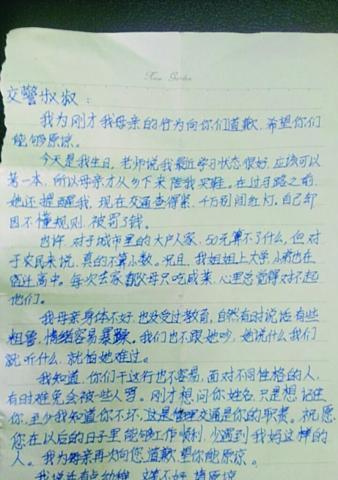 Rose Garden
交警叔叔：
我为刚才我母亲的行为向你们道歉，希望你们
能够原谅。
今天是我生日，老师说我最近学习状态很好，应该可以
第一本，所以母亲才从乡下来陪我买鞋。在过马路之前，
她还提醒我，现在交通查得紧，千万别闯红灯，自己却
因不懂规则，被罚了钱。
也许，对于城市里的大户人家，50元算不了什么，但对
于农民来说，真的不算小数。况且，我姐姐上大学，小弟也在
读高中。每次去家都父母只吃咸菜，心里总觉得对不起
他们。
我母亲身体不好，也没受过教育，自然有时说话有些
粗鲁，情绪容易暴躁。我们也不跟她吵，她说什么我们
就听什么，就怕她难过。
我知道，你们干这行也不容易，面对不同性格的人，
有时难免会被些人骂。刚才想问你姓名，只是想记住
你，至少我知道你不坏，这是管理交通是你的职责。祝愿
您在以后的日子里能够工作顺利，少遇到我妈这样的
人。我为母亲再次向您道歉望你能原谅。